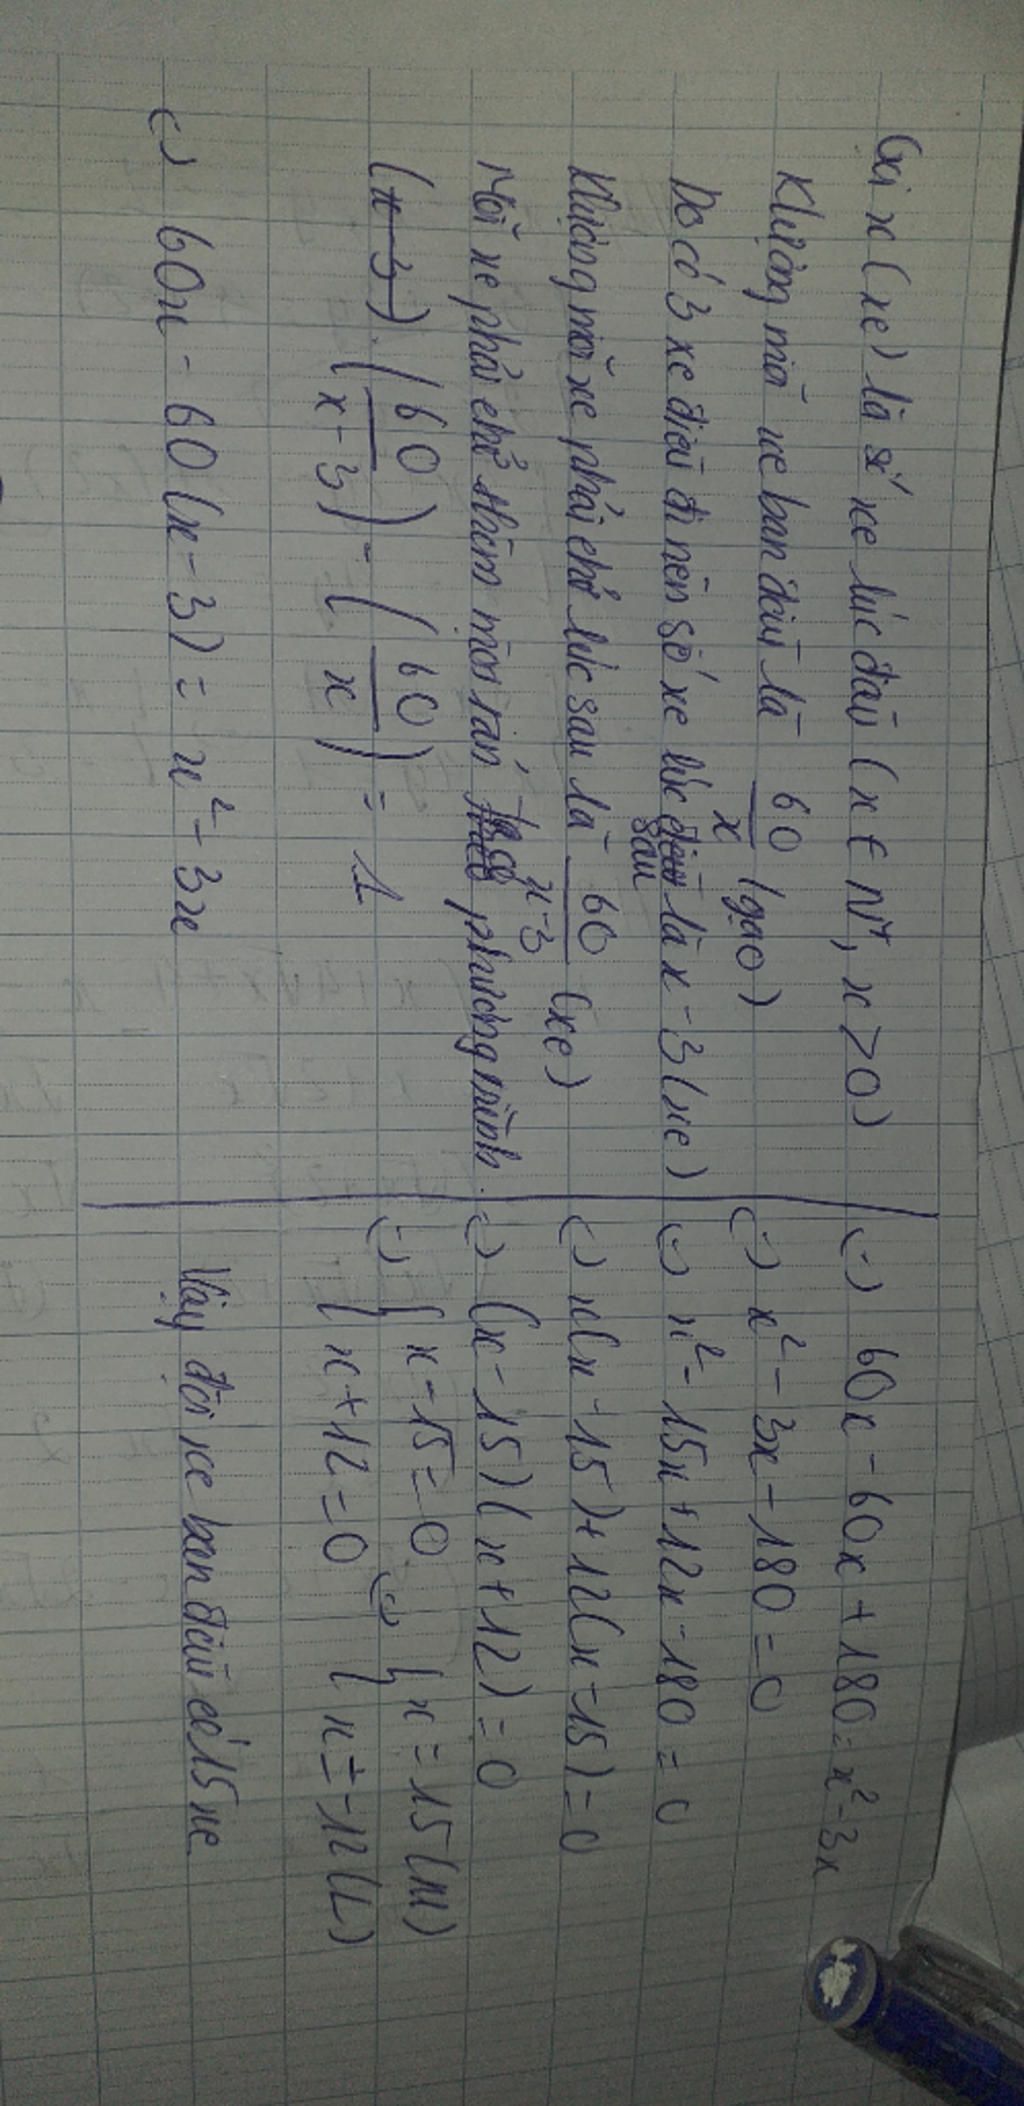 Gọi x (xe) là số xe lúc đầu (x ∈ N*, x > 0)
Klượng mỗi xe ban đầu là 60/x (gạo)
Do có 3 xe điều đi nên số xe lúc sau là x - 3 (xe)
Klượng mỗi xe phải chở lúc sau là 60/x-3 (xe)
Mỗi xe phải chở thêm 1 tấn phương trình
(60/x-3) - (60/x) = 1
(-) 60x - 60(x-3) = x² - 3x
(-) 60x - 60x + 180 = x² - 3x
(-) x² - 3x - 180 = 0
(-) x² - 15x + 12x - 180 = 0
(-) x(x - 15) + 12(x - 15) = 0
(-) (x - 15)(x + 12) = 0
(-) { x - 15 = 0 (-) { x = 15 (N)
{ x + 12 = 0 { x = -12 (L)
Vậy đội xe ban đầu có 15 xe